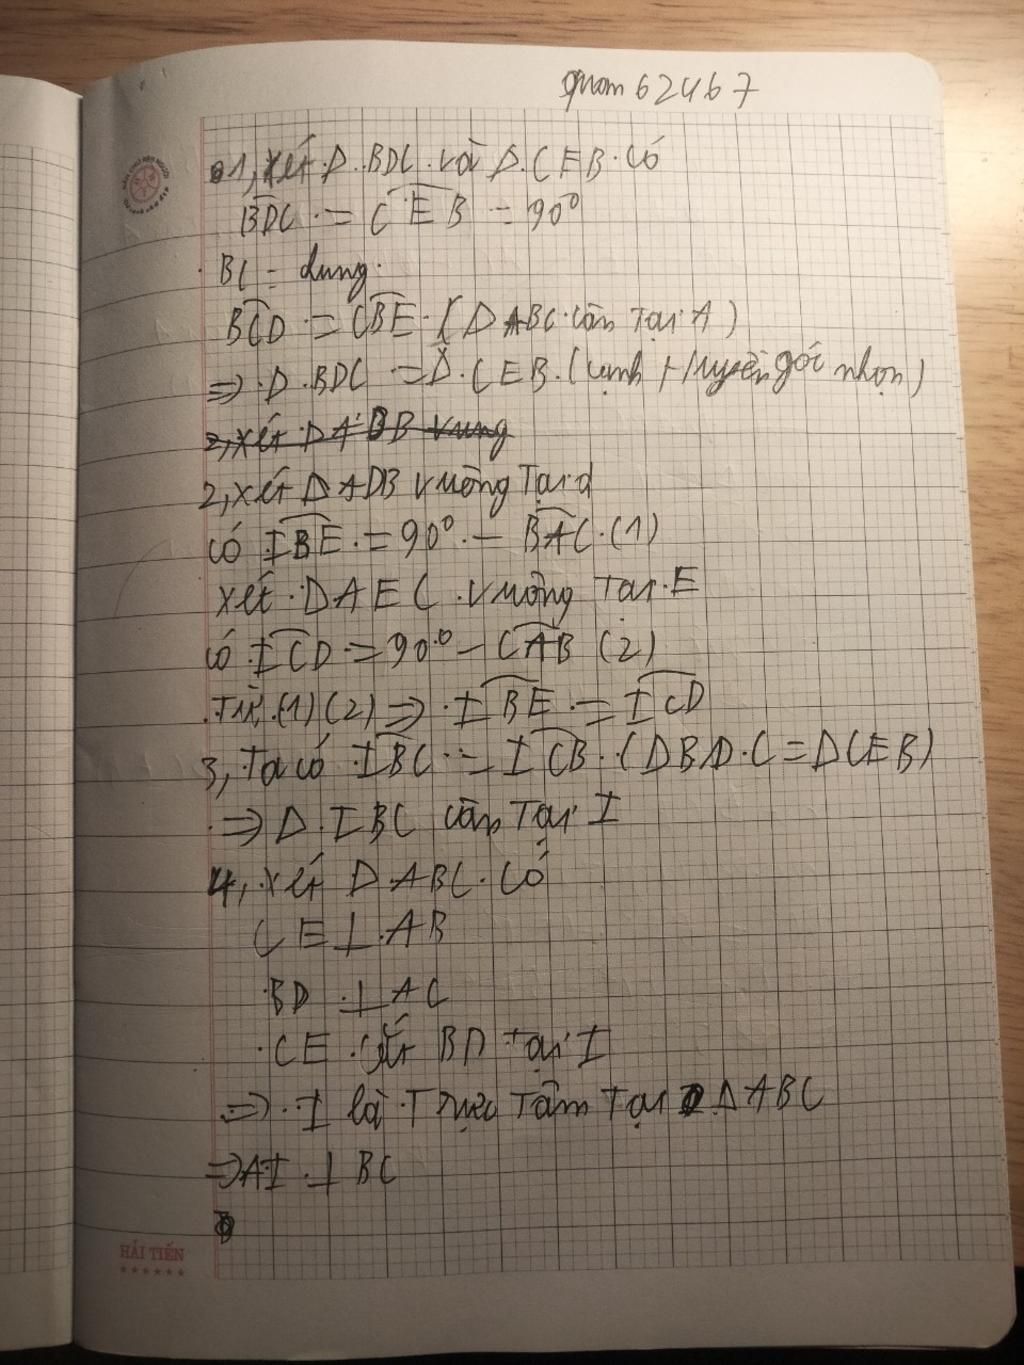 quam 62467
1, xét Δ BDC và Δ CEB có
BDC = CEB = 90°
BC = chung
BCD = CBE (Δ ABC cân tại A)
=> Δ BDC = Δ CEB (cạnh huyền góc nhọn)
2, xét Δ ADB vung
2, xét Δ ADB vuông tại d
có IBE = 90° - BAC (1)
xét Δ AEC vuông tại E
có ICD = 90° - CAB (2)
Từ (1) (2) => IBE = ICD
3, Ta có IBC = ICB (Δ BDC = Δ CEB)
=> Δ IBC cân tại I
4, xét Δ ABC có
CE ⊥ AB
BD ⊥ AC
CE cắt BD tại I
=> I là Trực Tâm Tại Δ ABC
=> AI ⊥ BC
HẢI TIẾN